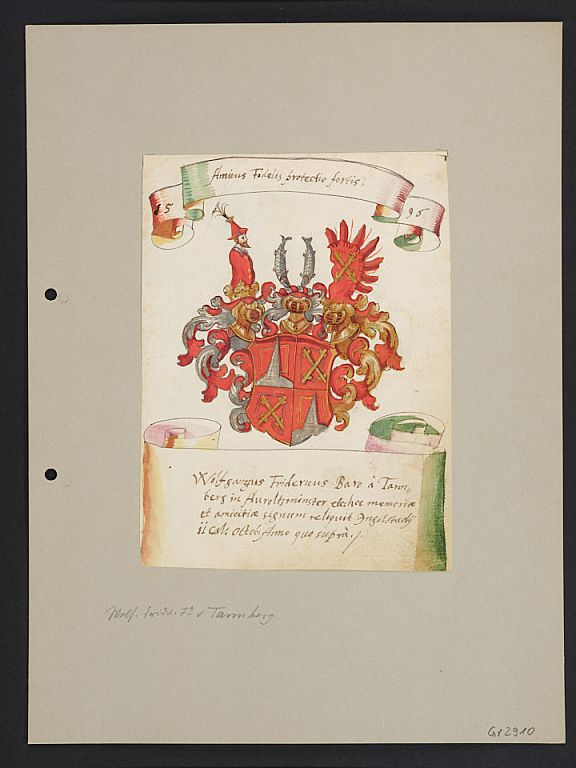 Amicus Fidelis protectio fortis.
15 96
Wolfgangus Fridericus Baro à Tann,
berg in Auroltzminster etc hoc memoriæ
et amicitiæ signum reliquit Ingolstadij
ii Cal. Octob. Anno quo suprà.
Wolf. v Tannberg
Gr 2910